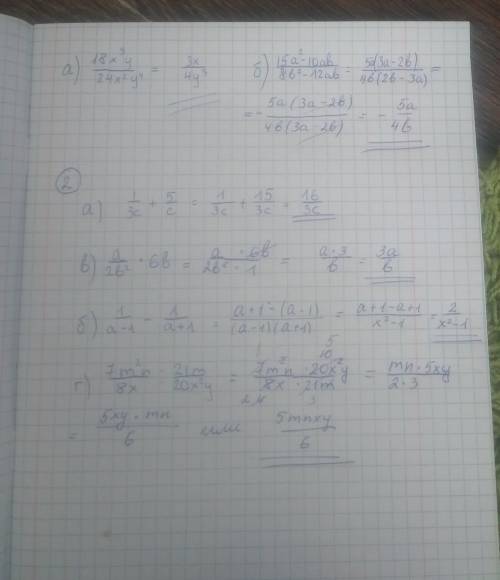 а) 18x³y/24x²y⁴ = 3x/4y³ б) 15a²-10ab/8b²-12ab = 5a(3a-2b)/4b(2b-3a) =
= - 5a(3a-2b)/4b(3a-2b) = - 5a/4b
2
а) 1/3c + 5/c = 1/3c + 15/3c = 16/3c
в) a/2b² · 6b = a · 6b/2b² · 1 = a·3/b = 3a/b
б) 1/a-1 - 1/a+1 = a+1-(a-1)/(a-1)(a+1) = a+1-a+1/x²-1 = 2/x²-1
г) 7m²n/8x : 21m/20x²y = 7m²n · 20x²y/8x · 21m = mn·5xy/2·3
= 5xy·mn/6 или 5mnxy/6